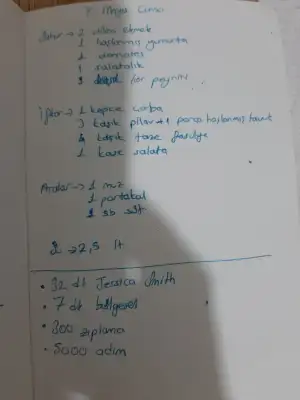 7 Mayıs Cuma
Sahur -> 2 dilim ekmek
1 haşlanmış yumurta
1 domates
1 salatalık
3 ler peyniri
İftar -> 1 kepçe çorba
3 kaşık pilav + 1 parça haşlanmış tavuk
4 kaşık taze fasulye
1 kase salata
Aralar -> 1 muz
1 portakal
1 sb süt
2 -> 2,5 lt
• 32 dk Jessica Smith
• 7 dk bölgesel
• 300 zıplama
• 5000 adım